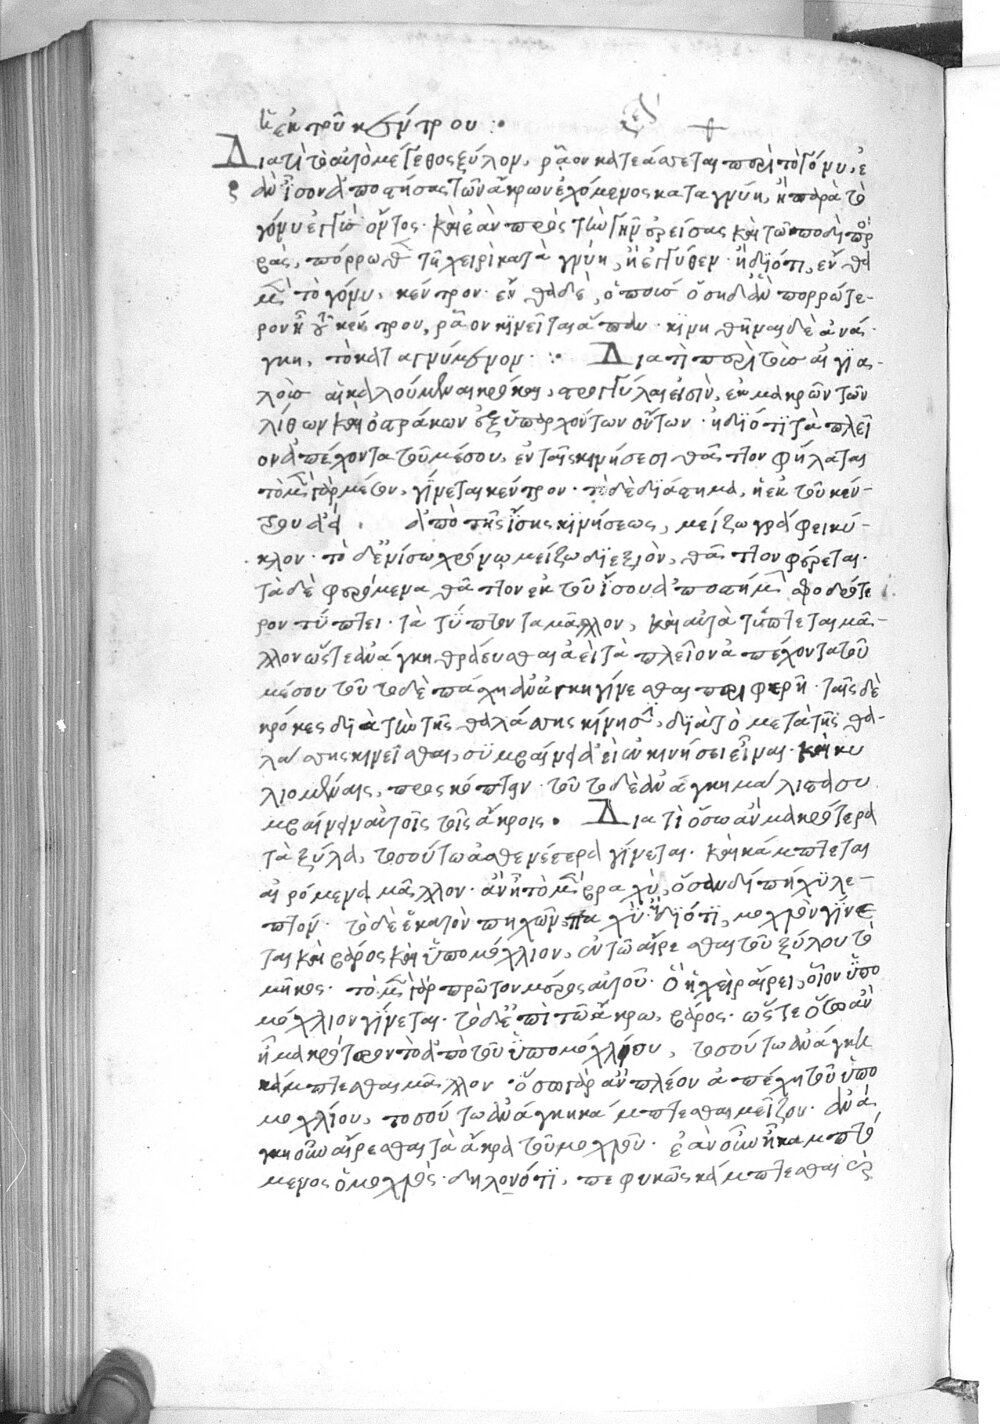 ἢ ἐκ τοῦ κέντρου :
Διατί τὸ αὐτὸ μέγεθος ξύλον, ῥᾷον κατεάσσεται περὶ τὸ γόνυ, ἐ
ὰν ἴσον ἀποστήσας τῶν ἄκρων ἐχόμενος καταγνύῃ, ἢ παρὰ τὸ
γόνυ ἐγγὺς ὄντος· καὶ ἐὰν πρὸς τὴν γῆν ἐρείσας καὶ τῷ ποδὶ προσ
βάς, πόρρωθεν τῇ χειρὶ κατὰγνύῃ, ἢ ἐγγύθεν· ἢ διότι, ἔνθα
μὲν τὸ γόνυ, κέντρον· ἔνθα δὲ, ὁ πούς· ὅσῃ δ' ἂν πορρώτε-
ρον ᾖ τοῦ κέντρου, ῥᾷον κινεῖται ἅπαν· κινηθῆναι δὲ ἀνάγ-
γκη, τὸ καταγνύμενον : Διατί περὶ τοὺς αἰγια-
λοὺς αἱ καλούμεναι κρόκαι, στρογγύλαι εἰσὶν, ἐκ μακρῶν τῶν
λίθων καὶ ὀστράκων ἐξυπαρχόντων ὄντων· ἢ διότι τὰ πλεῖ
ον ἀπέχοντα τοῦ μέσου, ἐν ταῖς κινήσεσι θᾶττον φέρεται
τὸ μὲν γὰρ μέσον, γίνεται κέντρον· τὸ δὲ διάστημα, ἡ ἐκ τοῦ κέν-
τρου ἀεὶ . ἀπὸ τῆς ἴσης κινήσεως, μείζω γράφει κύ-
κλον· τὸ δ' ἐν ἴσῳ χρόνῳ μείζω διεξιὸν, θᾶττον φέρεται·
τὰ δὲ φερόμενα θᾶττον ἐκ τοῦ ἴσου ἀποστήματος σφοδρότε
ρον τύπτει· τὰ τύπτοντα μᾶλλον, καὶ αὐτὰ τύπτεται μᾶ-
λλον ὥστε ἀνάγκη θραύεσθαι ἀεὶ τὰ πλεῖον ἀπέχοντα τοῦ
μέσου τοῦτο δὲ πάσχῃ ἀνάγκη γίνεσθαι περιφερῆ· ταῖς δὲ
κρόκες διὰ τὴν τῆς θαλάσσης κίνησιν, διὰ τὸ μετὰ τῆς θα-
λάσσης κινεῖσθαι, συμβαίνει ἀεὶ ἐν κινήσει εἶναι· καὶ κυ
λιομέναις, προσκόπτειν· τοῦτο δὲ ἀνάγκη μάλιστα συ
μβαίνειν αὐτοῖς τοῖς ἄκροις. Διατί ὅσῳ ἂν μακρότερα
τὰ ξύλα, τοσούτω ἀσθενέστερα γίνεται· καὶ κάμπτεται
αἰρόμενα μᾶλλον· ἂν ᾖ τὸ μὲν βραχὺ, ὅσον δίπηχυ λε-
πτόν· τὸ δὲ ἑκατὸν πηχῶν, παχύ· ἢ διότι, μοχλὸν γίνε
ται καὶ βάρος καὶ ὑπομόχλιον, ἐν τῷ αἴρεσθαι τοῦ ξύλου τὸ
μῆκος· τὸ μὲν γὰρ πρῶτον μέρος αὐτοῦ· ὃ ἡ χεὶρ αἴρει, οἷον ὑπο
μόχλιον γίνεται· τὸ δ' ἐπὶ τῷ ἄκρω, βάρος· ὥστε ὅσῳ ἂν
ᾖ μακρότερον τὸ ἀπὸ τοῦ ὑπομοχλίου, τοσούτω ἀνάγκη
κάμπτεσθαι μᾶλλον· ὅσω γὰρ ἂν πλέον ἀπέχῃ τοῦ ὑπο
μοχλίου, τοσούτω ἀνάγκη κάμπτεσθαι μεῖζον· ἀνά
γκη οὖν αἴρεσθαι τὰ ἄκρα τοῦ μοχλοῦ· ἐὰν οὖν ᾖ καμπτό
μενος ὁ μοχλὸς· δηλονότι, πεφυκὼς κάμπτεσθαι ἐξ